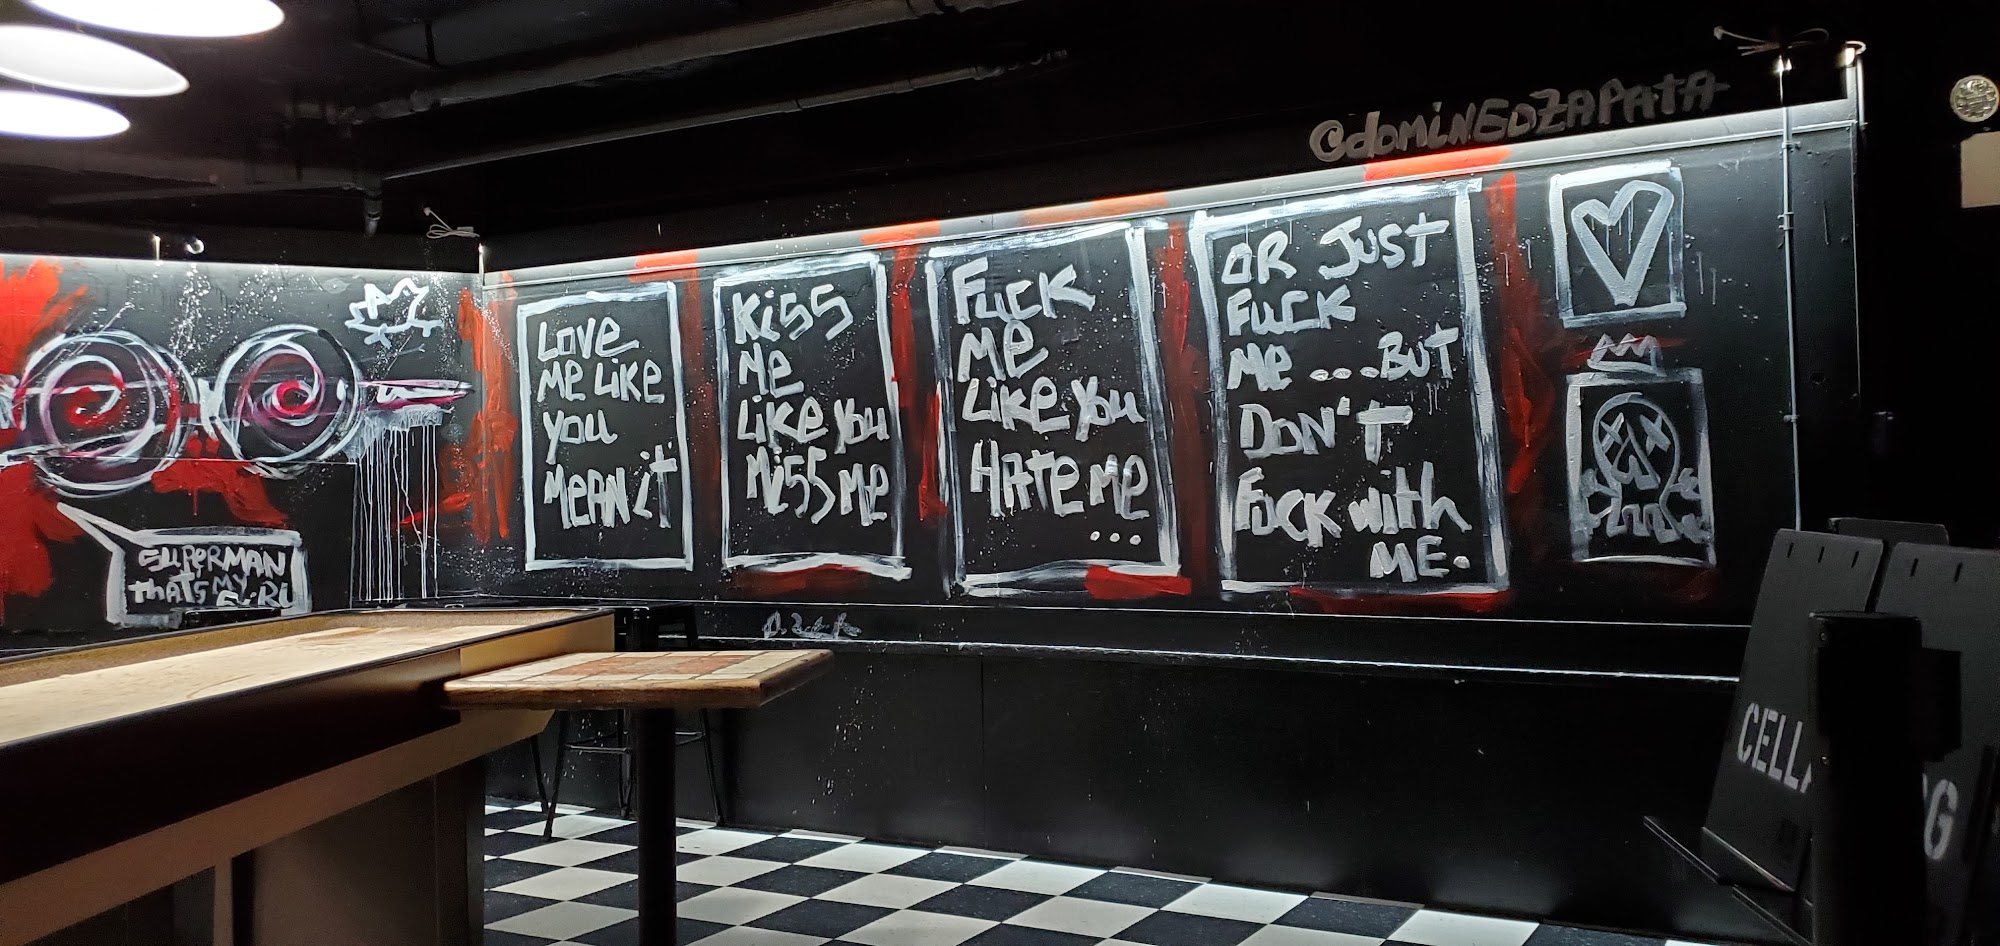 @DOMINGOZAPATA
LOVE
ME LIKE
YOU
MEAN it
KiSS
ME
LiKE YOU
MiSS ME
FUCK
ME
LiKE YOU
HATE ME
...
OR JUST
FUCK
ME ....BUT
DON'T
FUCK with
ME.
SUPERMAN
thAt'S MY
GiRL
CELLA
G